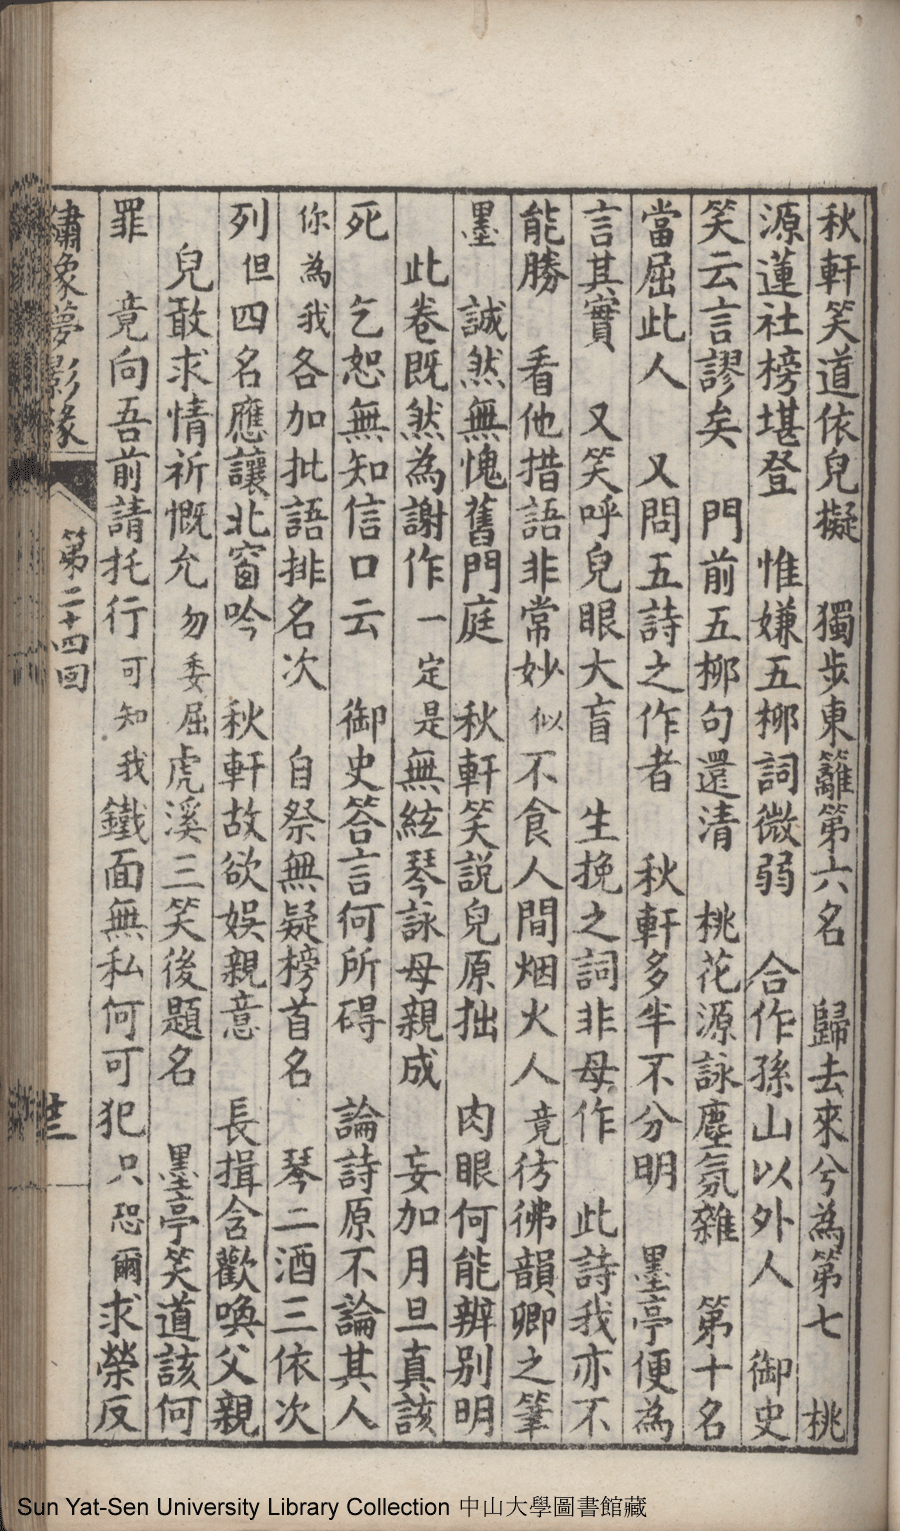 秋軒笑道依兒擬　獨步東籬第六名　歸去來兮為第七　桃
源蓮社榜堪登　惟嫌五柳詞微弱　合作孫山以外人　御史
笑云言謬矣　門前五柳句還清　桃花源詠塵氛雜　第十名
當屈此人　又問五詩之作者　秋軒多半不分明　墨亭便為
言其實　又笑呼兒眼大盲　生挽之詞非母作　此詩我亦不
能勝　看他措語非常妙　似不食人間烟火人　竟彷彿韻卿之筆
墨　誠然無愧舊門庭　秋軒笑說兒原拙　肉眼何能辨別明
此卷既然為謝作　一定是無絃琴詠母親成　妄加月旦真該
死　乞恕無知信口云　御史答言何所碍　論詩原不論其人
你為我各加批語排名次　自祭無疑榜首名　琴二酒三依次
列　但四名應讓北窗吟　秋軒故欲娛親意　長揖含歡喚父親
兒敢求情祈慨允　勿委屈虎溪三笑後題名　墨亭笑道該何
罪　竟向吾前請托行　可知我鐵面無私何可犯　只恐爾求榮反
繡像夢影緣　第二十四回　卅三
Sun Yat-Sen University Library Collection 中山大學圖書館藏